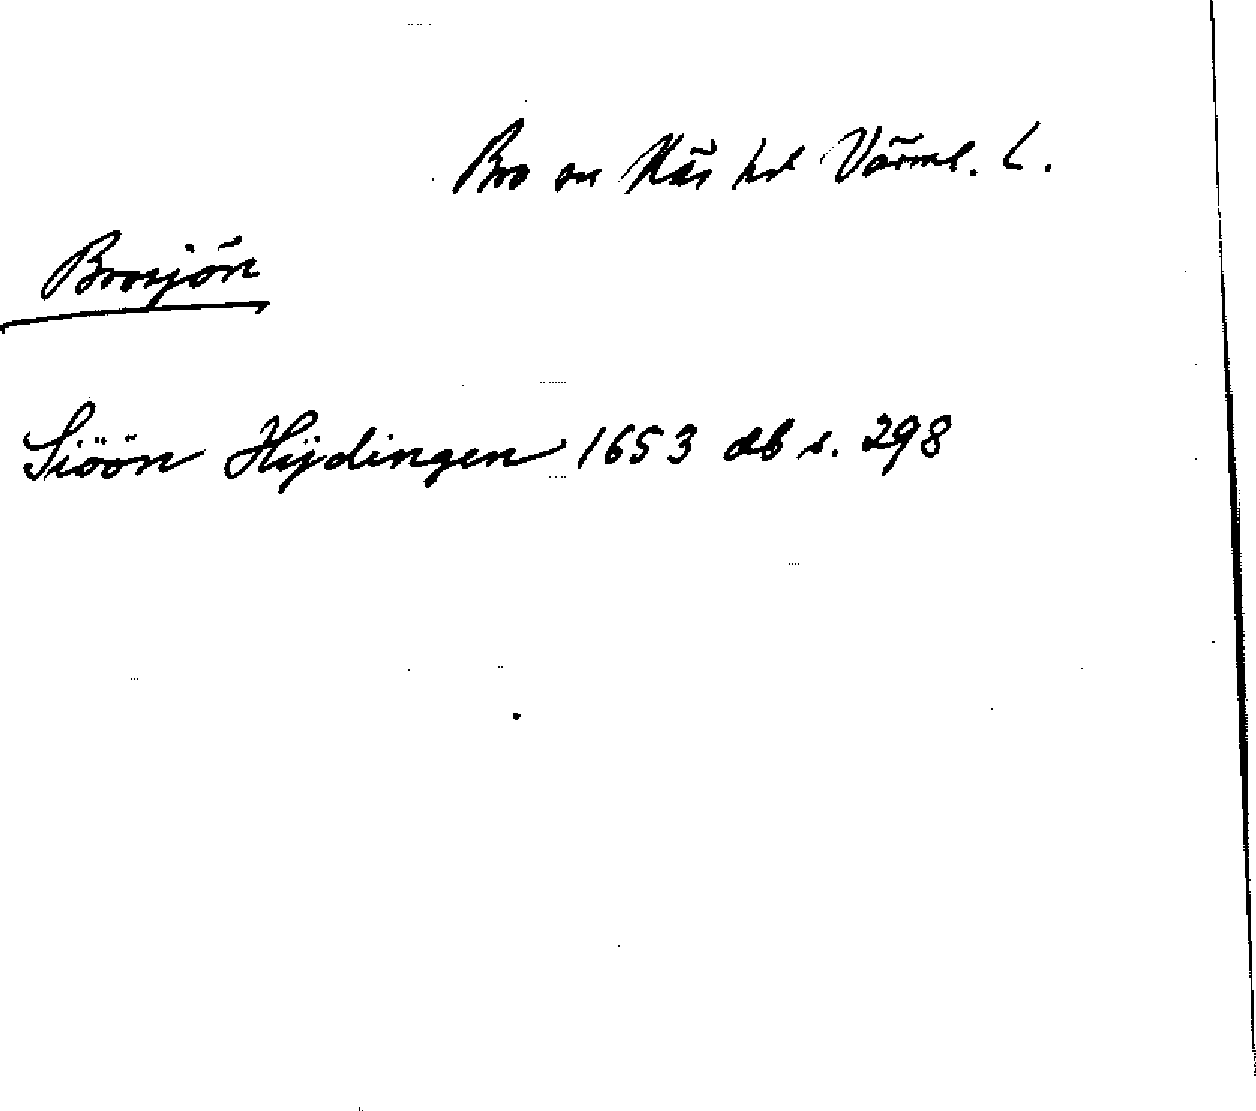 Bro sn Näs hd Värml. L.
Brosjön
Siöön Hÿdingen 1653 db s. 298